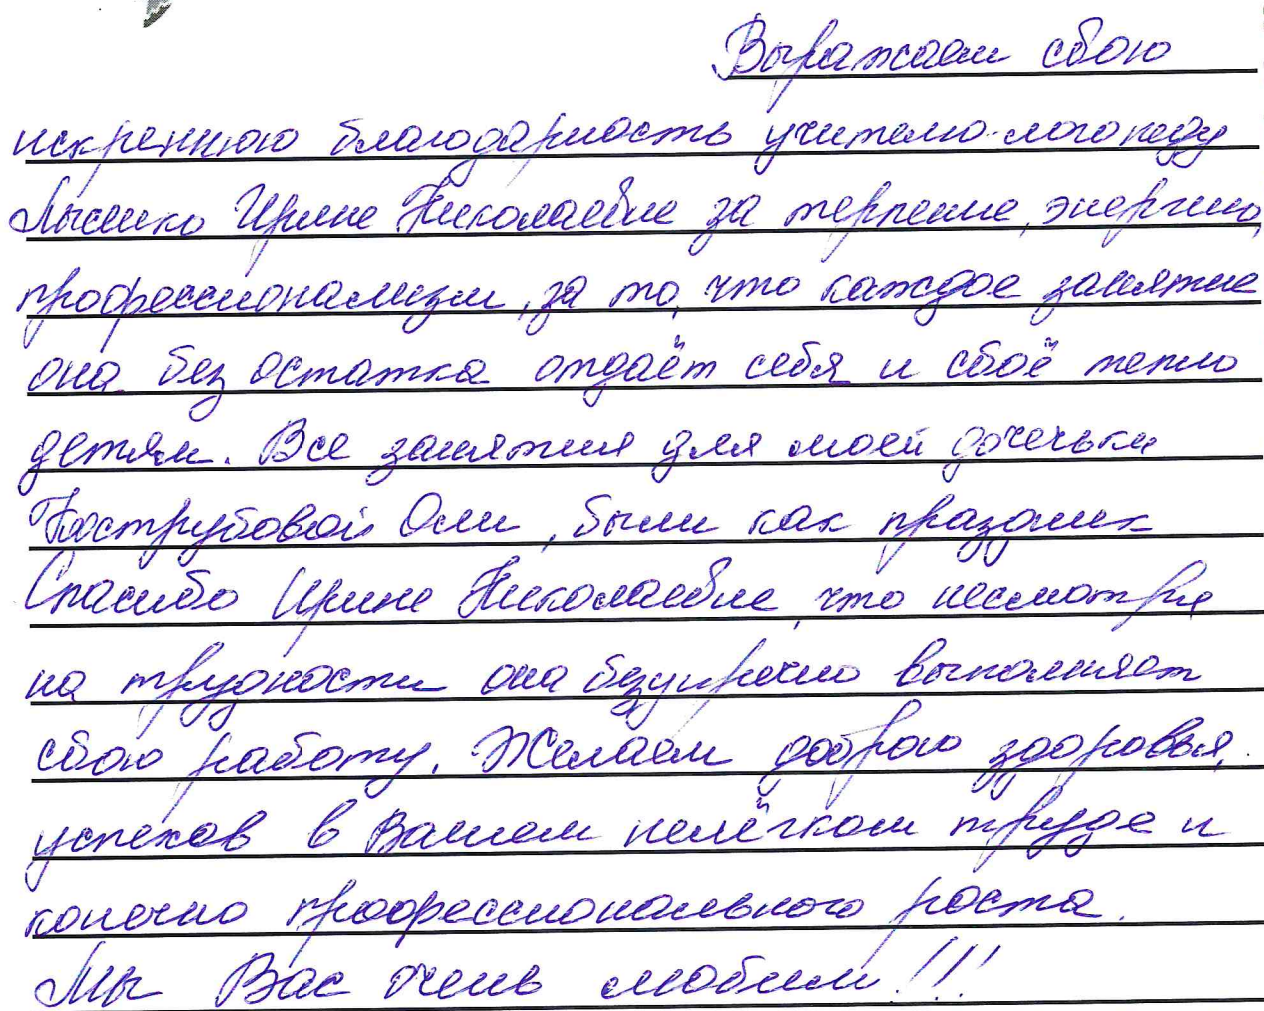 Выражаем свою
искреннюю благодарность учителю-логопеду
Лысенко Ирине Николаевне за терпение, энергию,
профессионализм, за то, что каждое занятие
она без остатка отдаёт себя и своё тепло
детям. Все занятия для моей дочечьки
Пострубовой Оли, были как праздник
Спасибо Ирине Николаевне, что несмотря
на трудности она безупречно выполняет
свою работу. Желаем доброго здоровья,
успехов в Вашем нелёгком труде и
конечно профессионального роста.
Мы Вас очень любим!!!